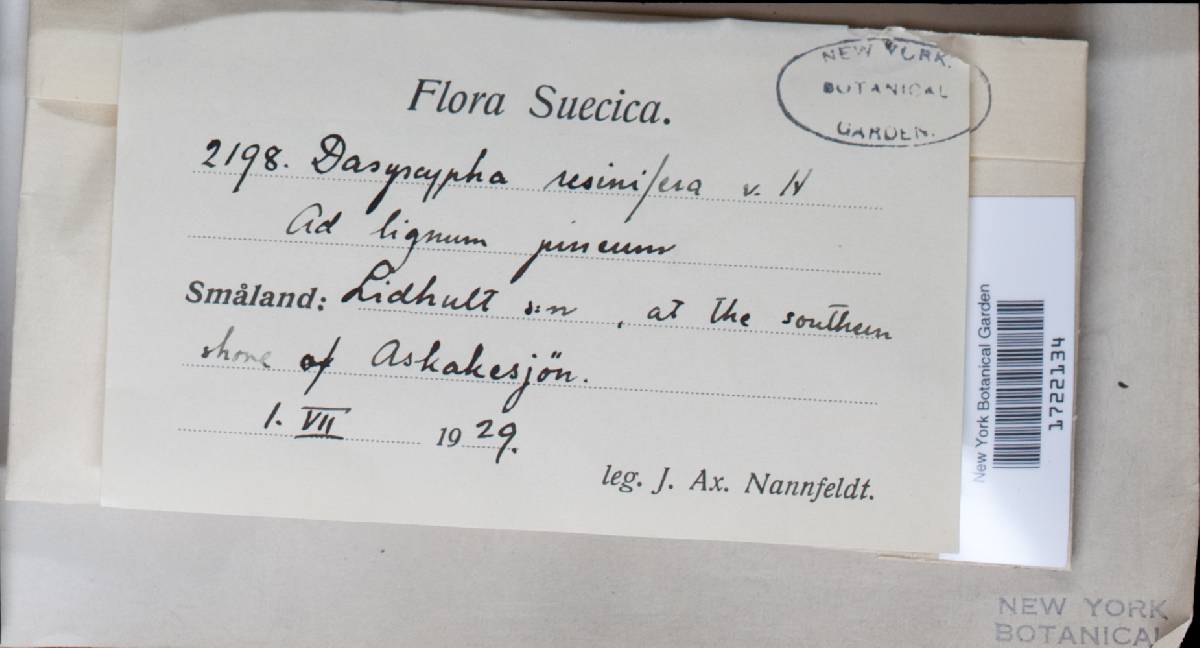 NEW YORK.
BOTANICAL
GARDEN.
Flora Suecica.
2198. Dasyscypha resinifera v. H
Ad lignum pineum
Småland: Lidhult s:n, at the southern
shore of Askakesjön.
1. VII 1929.
leg. J. Ax. Nannfeldt.
New York Botanical Garden
1722134
NEW YORK
BOTANICAL